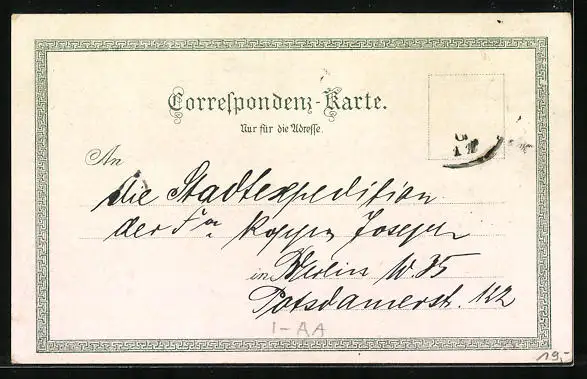 Correspondenz-Karte.
Nur für die Adresse.
An
die Stadtexpedition
der Fa Koppen Joseph
in Berlin W. 35
Potsdamerstr. 122
I-AA
19,-